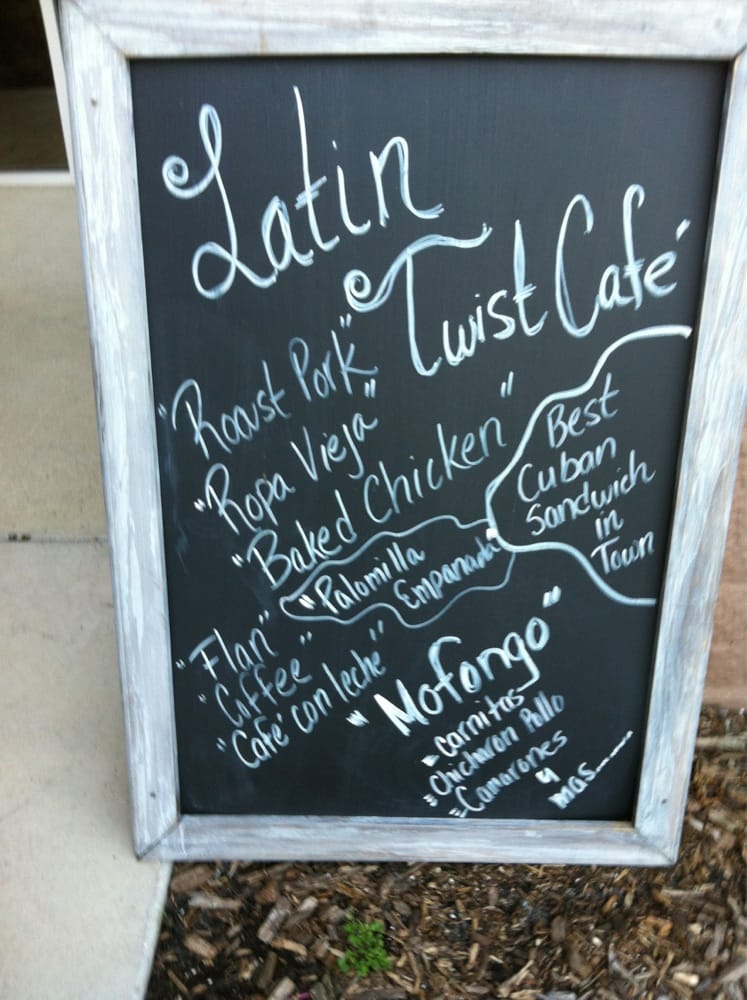 Latin
Twist Café
"Roast Pork"
"Ropa Vieja"
"Baked Chicken"
Best
Cuban
Sandwich
in
Town
"Palomilla
Empanada
"Flan"
"Coffee"
"Café con leche"
"Mofongo"
Carnitas
Chicharon Pollo
Camarones
y
mas......